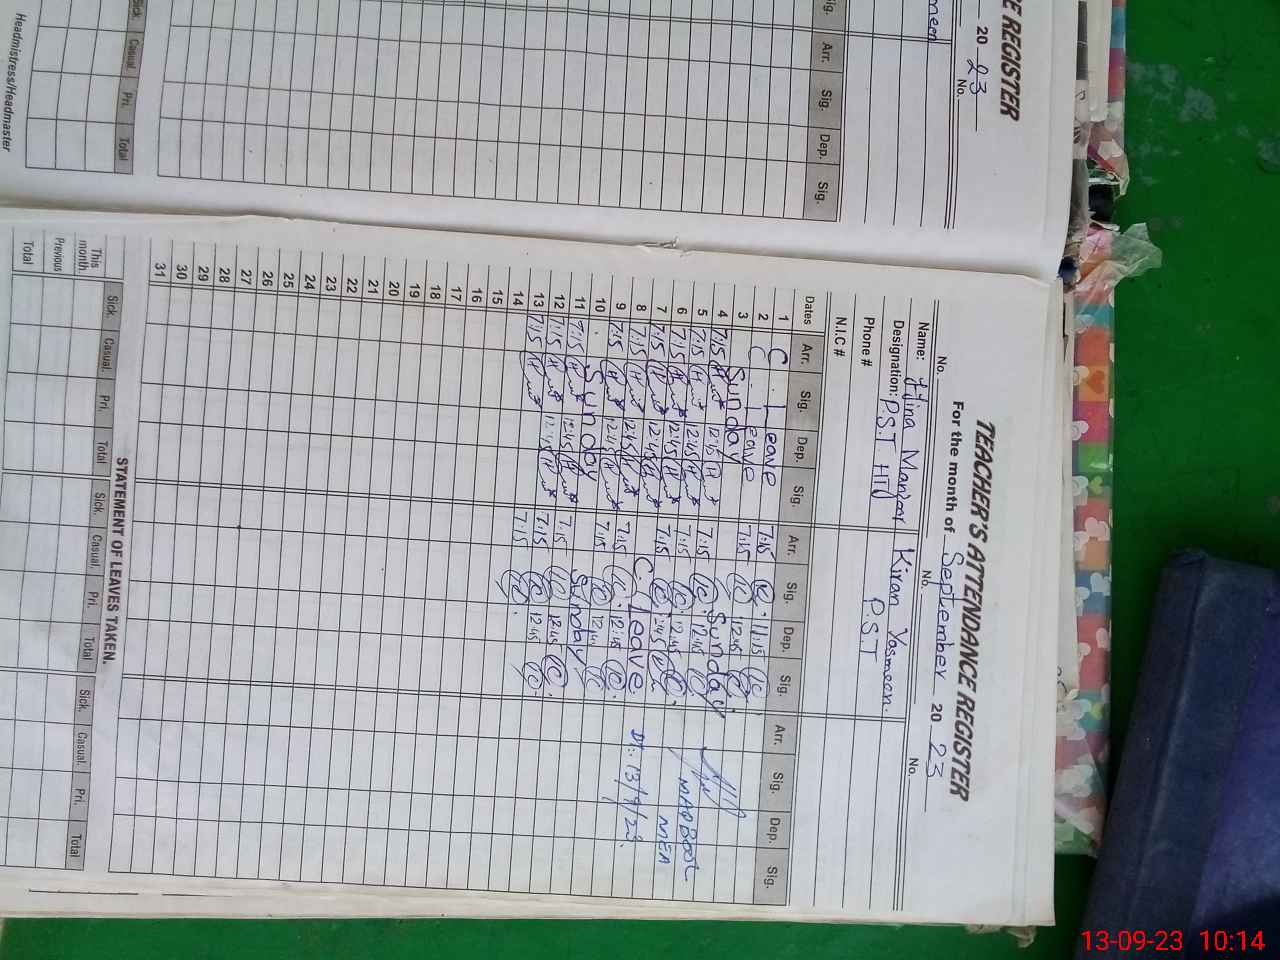 CE REGISTER
20 23
No.
meen
Sig. Arr. Sig. Dep. Sig.
Sick. Casual. Pri. Total
Headmistress/Headmaster
TEACHER'S ATTENDANCE REGISTER
For the month of September 20 23
No. No. No.
Name: Hina Manzoor Kiran Yasmeen.
Designation: P.S.T HTD P.S.T
Phone #
N.I.C #
Dates Arr. Sig. Dep. Sig. Arr. Sig. Dep. Sig. Arr. Sig. Dep. Sig.
1 C. Leave 7:15 11:15
2 C. Leave 7:15 12:45
3 Sunday Sunday
4 7:15 12:45 7:15 12:45
5 7:15 12:45 7:15 12:45
6 7:15 12:45 7:15 12:45
7 7:15 12:45 C. leave
8 7:15 12:45 7:15 12:45
9 7:15 12:45 7:15 12:45
10 Sunday Sunday
11 7:15 12:45 7:15 12:45
12 7:15 12:45 7:15 12:45
13 7:15 12:45 7:15
14
15
16
17
18
19
20
21
22
23
24
25
26
27
28
29
30
31
MAQBOOL
MEA
DT: 13/9/23.
STATEMENT OF LEAVES TAKEN.
Sick. Casual. Pri. Total Sick. Casual. Pri. Total Sick. Casual. Pri. Total
This month.
Previous
Total
13-09-23 10:14